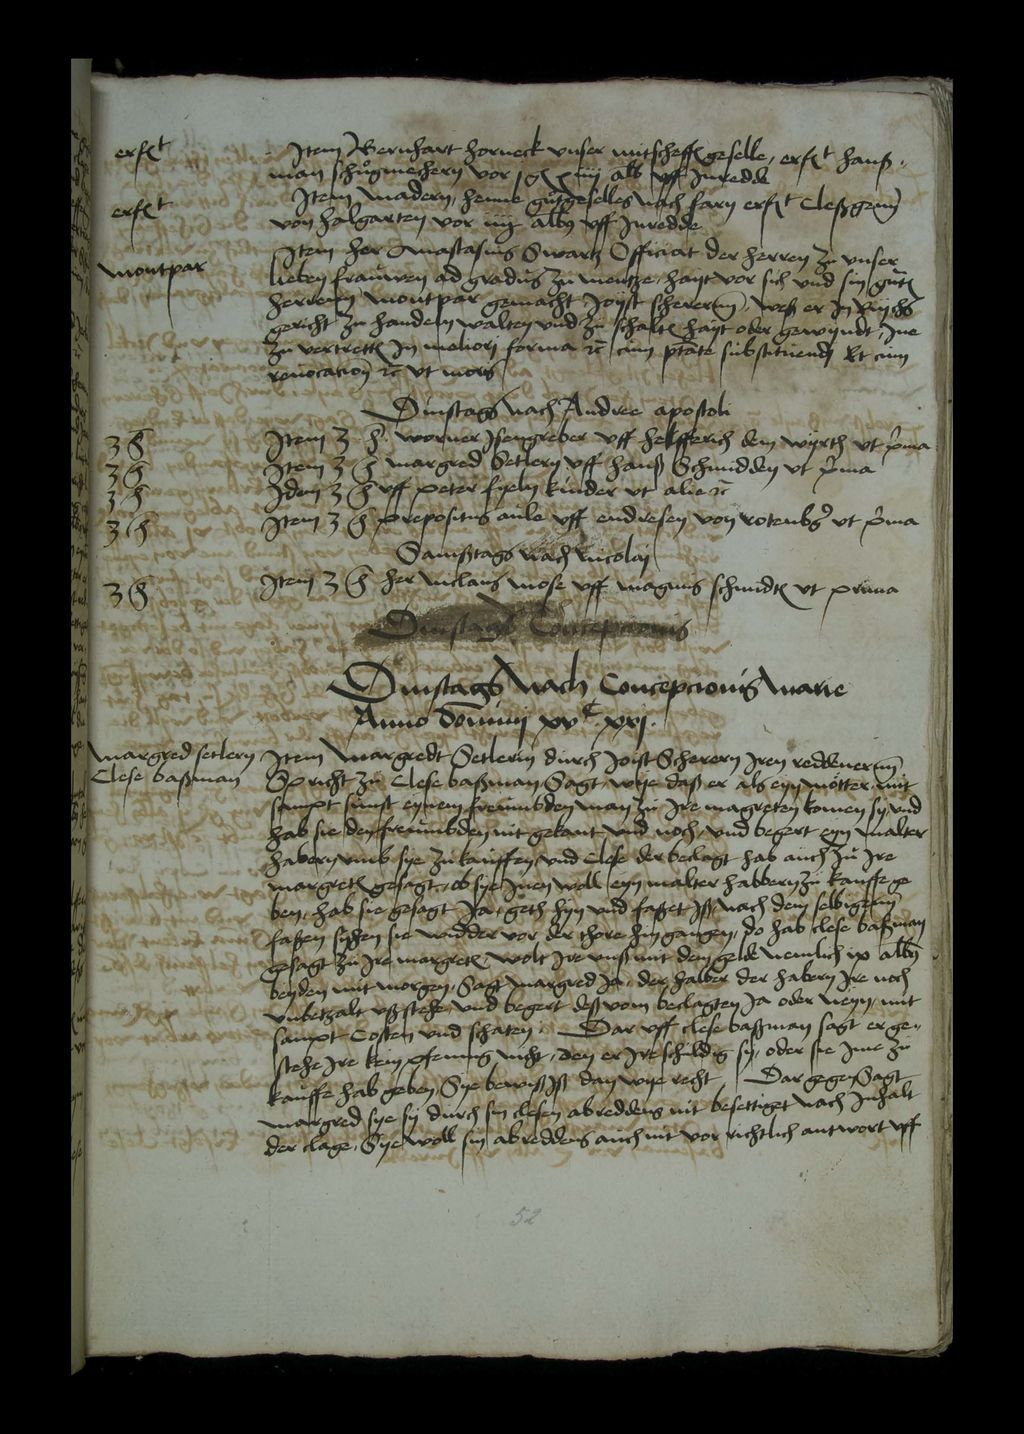 erkent Item Bernhart horneck unser mitscheffen geselle, erkent hanß
man schugmechern vor j g xiiij alb uff Inredde
erkent Item Madern henne gutgeselles nach farn erkent Cleßgen
von halgarten vor iiij albus uff Inredde
montpar Item her Anastasius Swartz Officiat der herren zu unser
lieben frauwen ad gradus zu mentze, hayt vor sich und sin guten
herrenn montpar gemacht, Joist scherern, weß er In Rychs
gericht zu handeln walten und zu schalten hayt oder gewyndt, Ine
zu vertretten In meliori forma etc cum potestate substituendi Et cum
revocacion etc ut moris
Dinstags nach Andree apostoli
3 h Item 3 h worner Isengreber uff helfferich dem wyrth ut prima
3 h Item 3 h margred Setlern uff hanß Schmidden ut prima
3 h Idem 3 h uff peter kinder ut alie etc
3 h Item 3 h prepositus aule uff endresen von rotenberg ut prima
Samßtags nach nicolaj
3 h Item 3 h her niclaus mose uff magnus schmidten ut prima
Dinstags Concepcionis
Dinstags nach Concepcionis marie
Anno dominj xvᶜ xxj.
margred setlern Item Margredt Setlerin durch Joist Scherern Iren reddener
Clese baßman Spricht zu Clese baßman Sagt wye daß er als eyn motter mit
sampt sunst eynem freumbden man zu Ire magreten komen sy, und
hab sie den freumbden nit gekant und noch, und begert eyn malter
habern umb sye zu kauffen, und Clese der beclagt hab auch zu Ire
margreten gesagt, ob sye Inen woll eyn malter habbern zu kauffe ge
ben, hab sie gesagt Ja, geth hyn und faßet Iß, nach dem selbigenn
faßen syhen sie widder vor der thore hin gangen, do hab clese baßman
gesagt zu Ire margreten wolt Ire unß mit dem gelde nemlich ix albus
beyden mit morgen, Sagt margred Ja, der halber der habern Ire noch
unbetzalt ußstehe, und begert deß vom beclagten Ja oder neyn, mit
sampt Costen und schaten. Dar uff clese baßman sagt er ge
stehe Ire kein pfennig nicht, den er Ire schuldig sy, oder sie Ime zu
kauffe hab geben, Sye bewiß Iß dan wye recht, Dar gegen Sagt
margred sye sy durch sin clesen abreddens nit besettiget nach Inhalt
der clage, Sye woll sin abreddens auch nit vor richtlich antwort uff
52